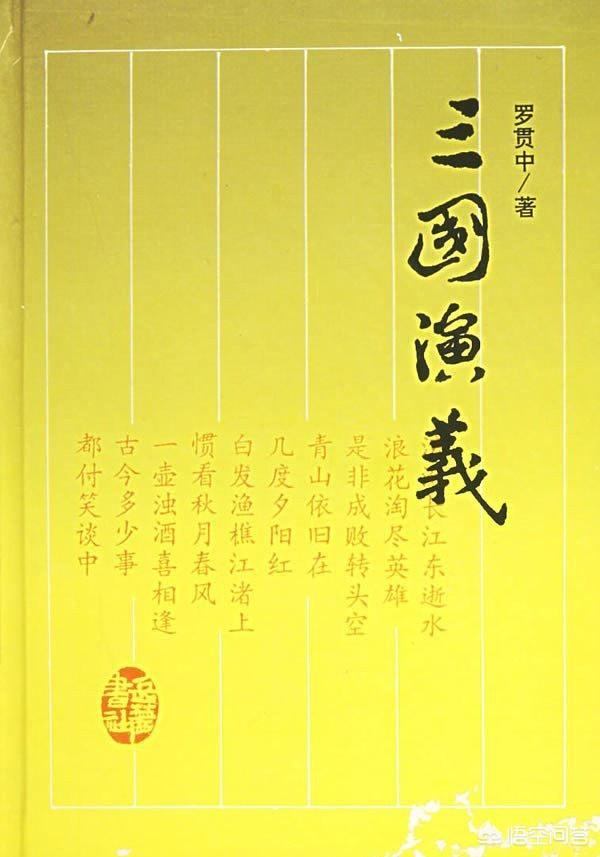 罗贯中/著
三國演義
长江东逝水
浪花淘尽英雄
是非成败转头空
青山依旧在
几度夕阳红
白发渔樵江渚上
惯看秋月春风
一壶浊酒喜相逢
古今多少事
都付笑谈中
岳麓書社
悟空问答